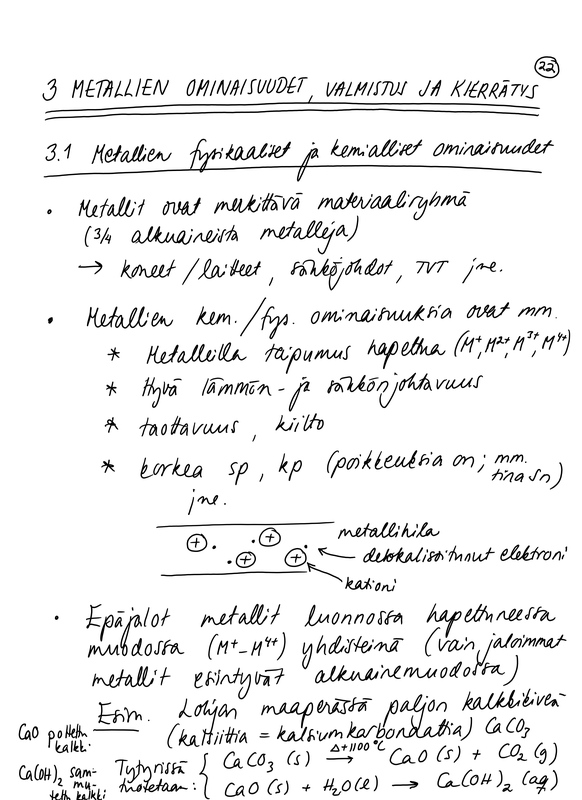 22
3 METALLIEN OMINAISUUDET, VALMISTUS JA KIERRÄTYS
3.1 Metallien fysikaaliset ja kemialliset ominaisuudet
• Metallit ovat merkittävä materiaaliryhmä
(3/4 alkuaineista metalleja)
→ koneet / laitteet, sähköjohdot, TVT jne.
• Metallien kem. / fys. ominaisuuksia ovat mm.
* Metalleilla taipumus hapettua (M⁺, M²⁺, M³⁺, M⁴⁺)
* Hyvä lämmön- ja sähkönjohtavuus
* taottavuus, kiilto
* korkea sp, kp (poikkeuksia on; mm. tina Sn)
jne.
metallihila
delokalisoitunut elektroni
kationi
• Epäjalot metallit luonnossa hapettuneessa
muodossa (M⁺-M⁴⁺) yhdisteinä (vain jaloimmat
metallit esiintyvät alkuainemuodossa)
Esim. Lohjan maaperässä paljon kalkkikiveä
(kalsiittia = kalsiumkarbonaattia) CaCO₃
CaO poltettu kalkki.
Ca(OH)₂ sammutettu kalkki
Tytyrissä tuotetaan:
CaCO₃ (s) Δ+1100 °C → CaO (s) + CO₂ (g)
CaO (s) + H₂O(l) → Ca(OH)₂ (aq)